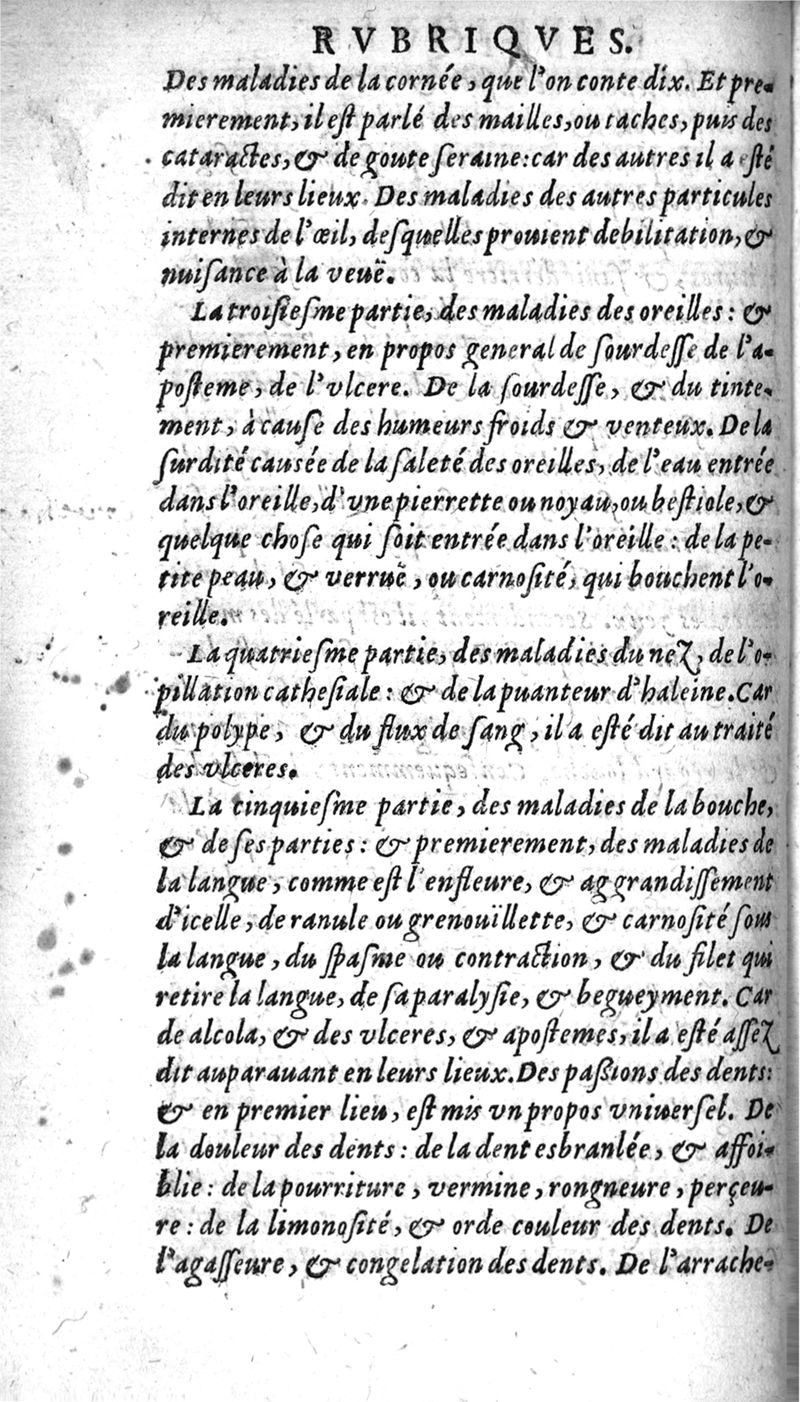 RVBRIQVES.
Des maladies de la cornée, que l'on conte dix. Et pre-
mierement, il eſt parlé des mailles, ou taches, puis des
cataractes, & de goute ſeraine: car des autres il a eſté
dit en leurs lieux. Des maladies des autres particules
internes de l'œil, deſquelles prouient debilitation, &
nuiſance à la veuë.
La troiſieſme partie, des maladies des oreilles: &
premierement, en propos general de ſourdeſſe de l'a-
poſteme, de l'vlcere. De la ſourdeſſe, & du tinte-
ment, à cauſe des humeurs froids & venteux. De la
ſurdité cauſée de la ſaleté des oreilles, de l'eau entrée
dans l'oreille, d'vne pierrette ou noyau, ou beſtiole, &
quelque choſe qui ſoit entrée dans l'oreille: de la pe-
tite peau, & verruë, ou carnoſité, qui bouchent l'o-
reille.
La quatrieſme partie, des maladies du nez, de l'o-
pillation catheſiale: & de la puanteur d'haleine. Car
du polype, & du flux de ſang, il a eſté dit au traité
des vlceres.
La cinquieſme partie, des maladies de la bouche,
& de ſes parties: & premierement, des maladies de
la langue, comme eſt l'enfleure, & aggrandiſſement
d'icelle, de ranule ou grenouïllette, & carnoſité ſous
la langue, du ſpaſme ou contraction, & du filet qui
retire la langue, de ſa paralyſie, & begueyment. Car
de alcola, & des vlceres, & apoſtemes, il a eſté aſſez
dit auparauant en leurs lieux. Des paſsions des dents:
& en premier lieu, eſt mis vn propos vniuerſel. De
la douleur des dents: de la dent esbranlée, & affoi-
blie: de la pourriture, vermine, rongneure, perçeu-
re: de la limonoſité, & orde couleur des dents. De
l'agaſſeure, & congelation des dents. De l'arrache-